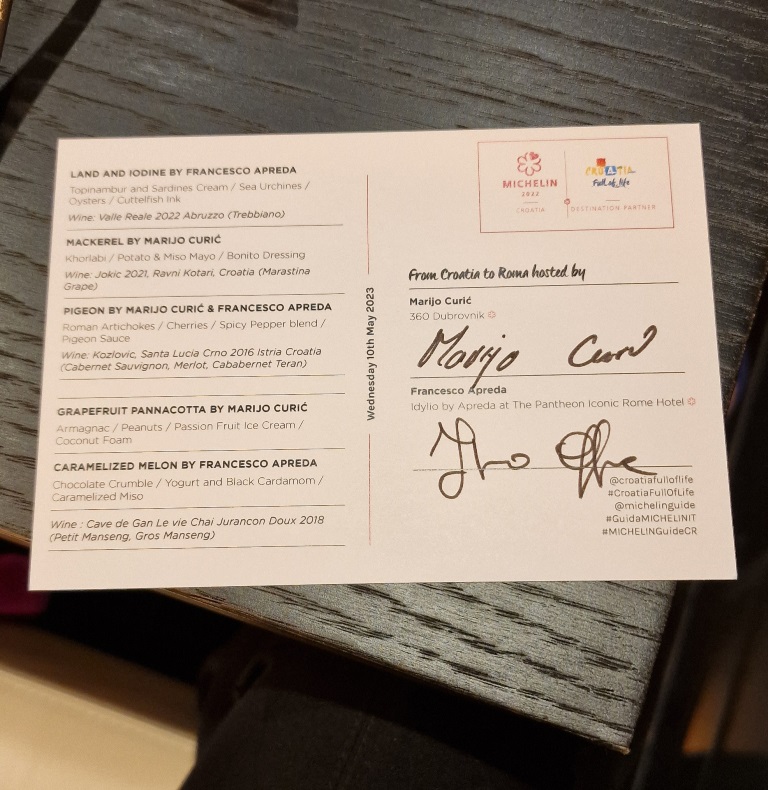 LAND AND IODINE BY FRANCESCO APREDA
Topinambur and Sardines Cream / Sea Urchines /
Oysters / Cuttelfish Ink
Wine: Valle Reale 2022 Abruzzo (Trebbiano)
MACKEREL BY MARIJO CURIĆ
Khorlabi / Potato & Miso Mayo / Bonito Dressing
Wine: Jokic 2021, Ravni Kotari, Croatia (Marastina
Grape)
PIGEON BY MARIJO CURIĆ & FRANCESCO APREDA
Roman Artichokes / Cherries / Spicy Pepper blend /
Pigeon Sauce
Wine: Kozlovic, Santa Lucia Crno 2016 Istria Croatia
(Cabernet Sauvignon, Merlot, Cababernet Teran)
GRAPEFRUIT PANNACOTTA BY MARIJO CURIĆ
Armagnac / Peanuts / Passion Fruit Ice Cream /
Coconut Foam
CARAMELIZED MELON BY FRANCESCO APREDA
Chocolate Crumble / Yogurt and Black Cardamom /
Caramelized Miso
Wine : Cave de Gan Le vie Chai Jurancon Doux 2018
(Petit Manseng, Gros Manseng)
Wednesday 10th May 2023
MICHELIN
2022
CROATIA
CROATIA
Full of life
DESTINATION PARTNER
From Croatia to Roma hosted by
Marijo Curić
360 Dubrovnik
Marijo Curić
Francesco Apreda
Idylio by Apreda at The Pantheon Iconic Rome Hotel
@croatiafulloflife
#CroatiaFullOfLife
@michelinguide
#GuidaMICHELINIT
#MICHELINGuideCR